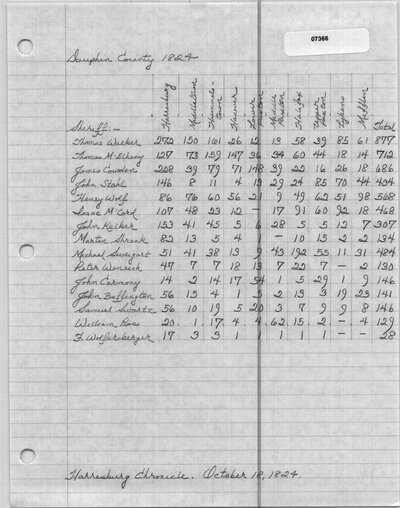 07366
Dauphin County 1824
Harrisburg Middletown Hummels-town Hanover Lower Paxton Middle Paxton Halifax Upper Paxton Lykens Mifflin
Sheriff:- Total
Thomas Walker 272 150 161 26 12 13 58 39 85 61 877
Thomas McElheny 127 73 159 147 36 34 60 44 18 14 712
James Cowden 228 39 79 71 148 39 22 16 26 18 686
John Stahl 146 8 11 4 13 29 24 85 70 44 434
Henry Wolf 86 76 60 56 21 9 49 62 51 98 568
Isaac McCord 107 48 23 12 - 17 91 60 92 18 468
John Kelker 153 41 45 5 6 28 5 5 12 7 307
Martin Shrenk 82 13 5 4 1 - 10 15 2 2 134
Michael Sweigert 51 41 38 13 9 43 192 55 11 31 484
Peter Wenrick 47 7 7 18 13 7 22 7 - 2 130
John Carmony 14 2 14 17 54 1 5 29 1 9 146
John Buffington 56 15 4 1 5 2 13 3 19 23 141
Samuel Swartz 56 10 19 5 20 3 7 9 9 8 146
William Ross 20 1 17 4 4 62 15 2 - 4 129
F. Wolfersberger 17 3 3 1 1 1 1 1 - - 28
Harrisburg Chronicle. October 18, 1824.